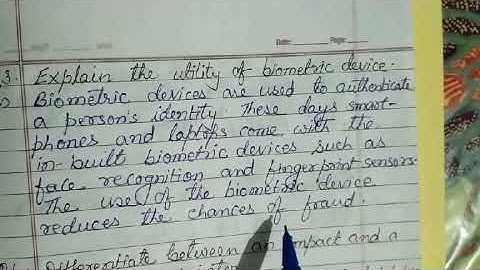 Date: Page:
3. Explain the utility of biometric device.
Biometric devices are used to authenticate
a person's identity. These days smart-
phones and laptops come with the
in-built biometric devices such as
face recognition and fingerprint sensors.
The use of the biometric device
reduces the chances of fraud.
Differentiate between an impact and a